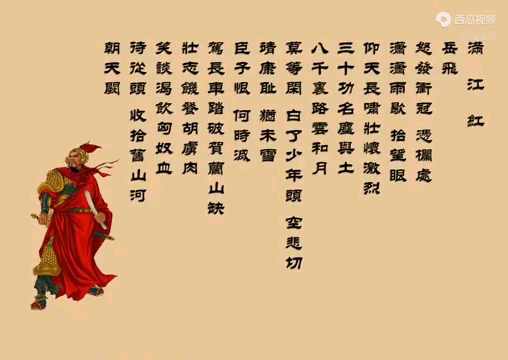 西瓜视频
满江紅
岳飛
怒發衝冠 憑欄處
瀟瀟雨歇 抬望眼
仰天長嘯壯懷激烈
三十功名塵與土
八千裏路雲和月
莫等閑 白了少年頭 空悲切
靖康耻 猶未雪
臣子恨 何時滅
駕長車踏破賀蘭山缺
壯志饑餐胡虜肉
笑談渴飲匈奴血
待從頭 收拾舊山河
朝天闕